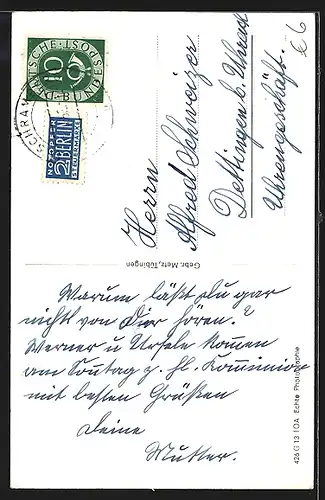 DEUTSCHE BUNDESPOST
10
SCHRAM
NOTOPFER
2 BERLIN
STEUERMARKE
€ 6
Herrn
Alfred Schweizer
Dettingen b. Urach
Uhrengeschäft.
Gebr. Metz, Tübingen
Warum läßt Du gar
nichts von Dir hören?
Werner u Ursele kommen
am Sonntag z. hl. Kommunion
mit besten Grüßen
Deine
Mutter.
426 G 13 TOA Echte Photographie